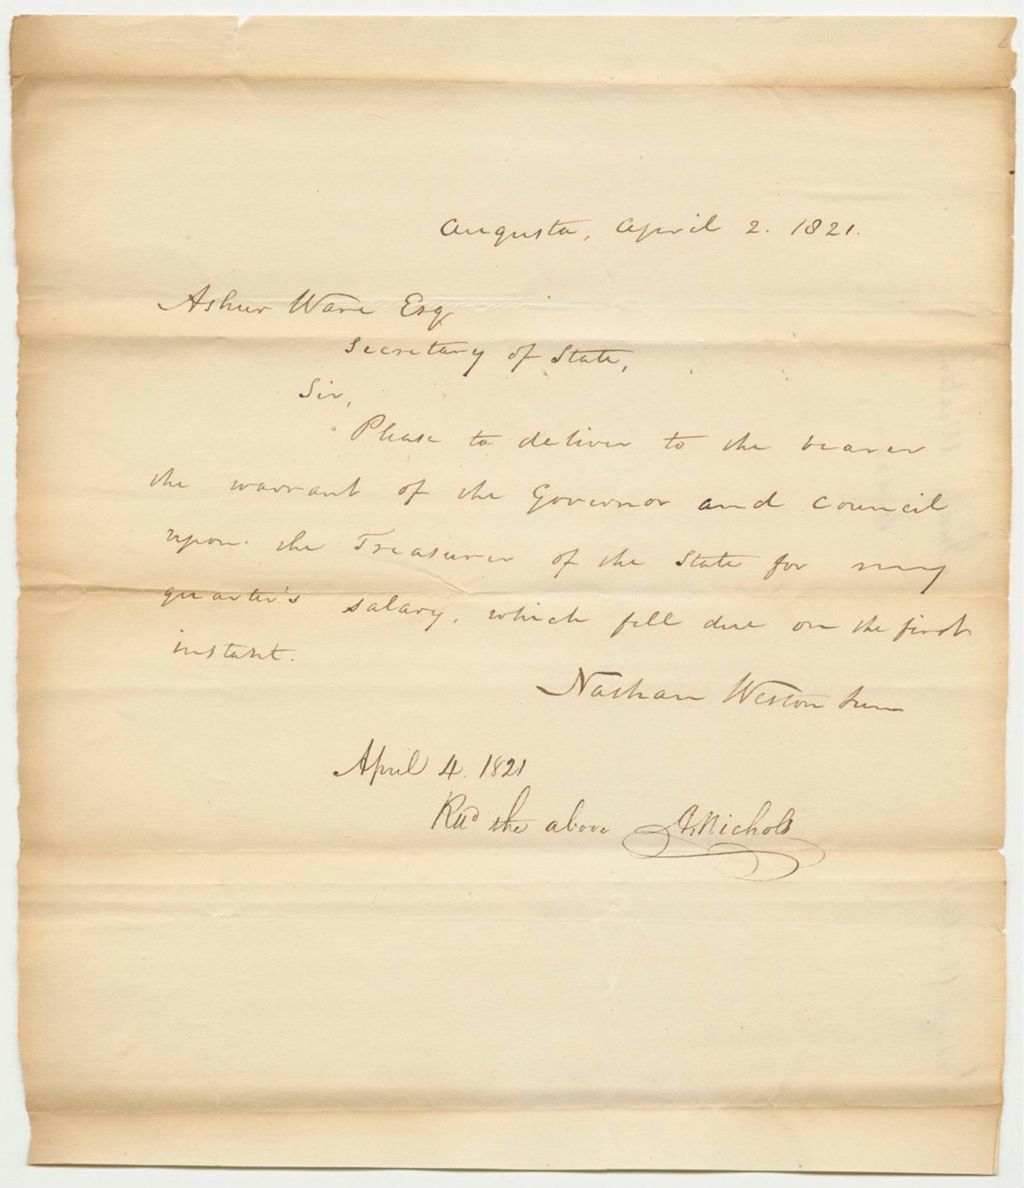 Augusta, April 2. 1821.
Ashur Ware Esq
Secretary of State,
Sir,
Please to deliver to the bearer
the warrant of the Governor and Council
upon the Treasurer of the State for my
quarter's salary, which fell due on the first
instant.
Nathan Weston Jun
April 4. 1821
Recd the above Nichols